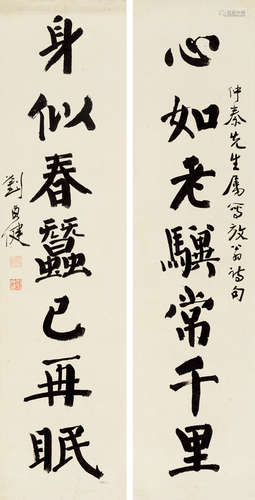 心如老驥常千里
仲秦先生属写放翁诗句
身似春蠶已再眠
劉自健